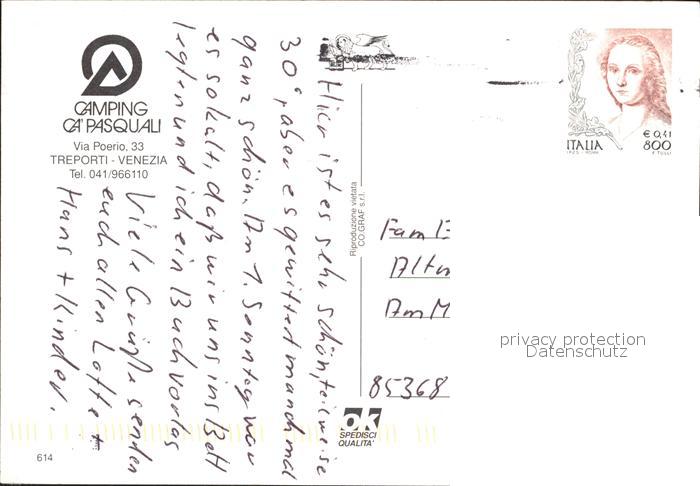 CAMPING
CA' PASQUALI
Via Poerio, 33
TREPORTI - VENEZIA
Tel. 041/966110
Hier ist es sehr schön, teilweise
30°, aber es gewittert manchmal
ganz schön. Am 1. Sonntag war
es so kalt, daß wir uns ins Bett
legten und ich ein Buch vorlas
Viele Grüße senden
euch allen Lotte +
Hans + Kinder.
614
Riproduzione vietata
CO.GRAF s.r.l.
ITALIA
€ 0,41
800
I.P.Z.S. - ROMA
F. TULLI
Fam
Am M
85368
ok
SPEDISCI
QUALITA'
privacy protection
Datenschutz